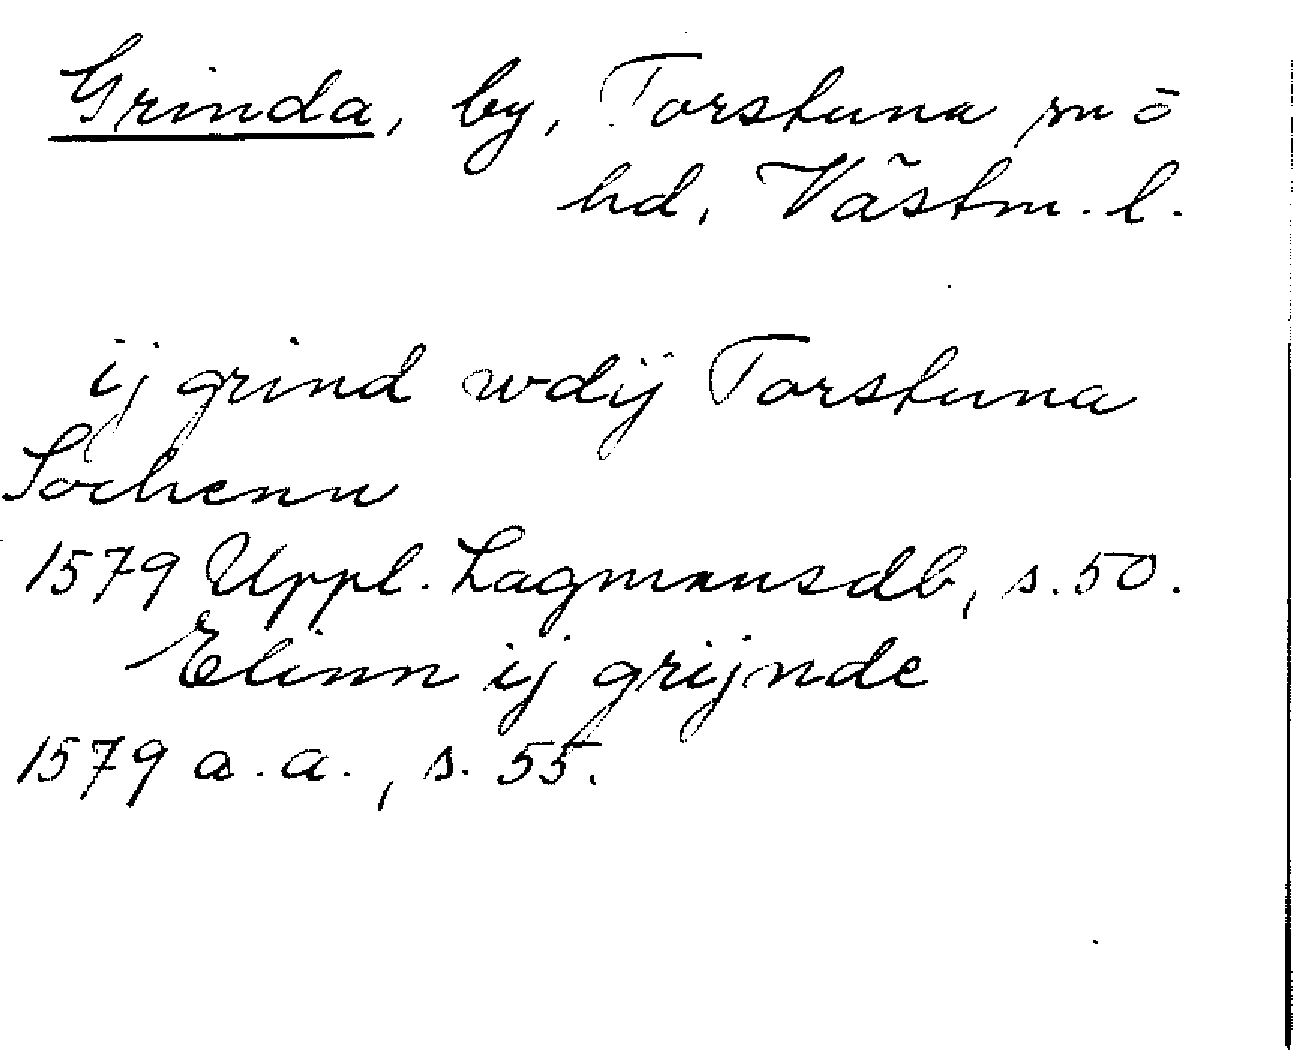 Grinda, by, Torstuna sn ō
hd, Västm. l.
ij grind wdij Torstuna
Sochenn
1579 Uppl. Lagmansdb, s. 50.
Elinn ij grijnde
1579 a. a., s. 55.